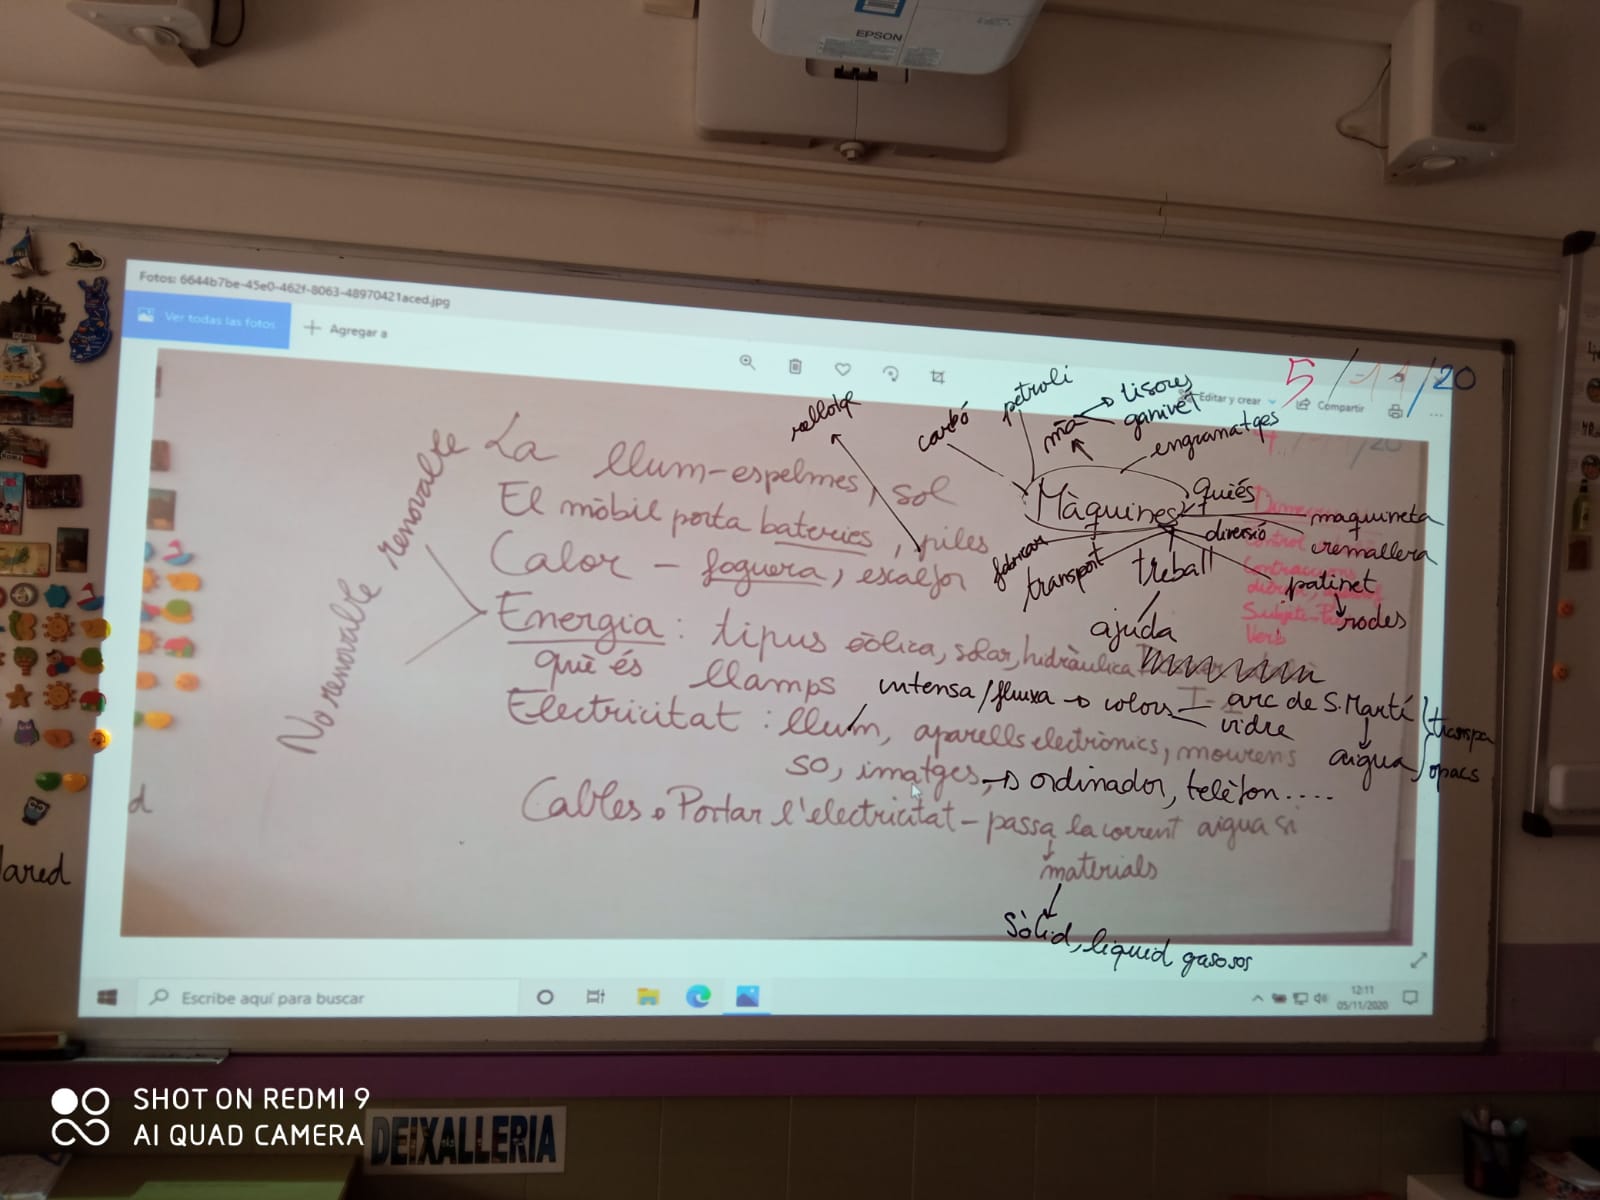 EPSON
Fotos: 6644b7be-45e0-462f-8063-48970421aced.jpg
Ver todas las fotos
Agregar a
Editar y crear
Compartir
5/11/20
rellotge
carbó
petroli
mà
tisores
ganivet
engranatges
Màquines
què és
maquineta
cremallera
diversió
patinet
rodes
fabricar
transport
treball
ajuda
No renovable renovable
La llum-espelmes, sol
El mòbil porta bateries, piles
Calor - foguera, escalfor
Energia: tipus eòlica, solar, hidràulica
què és llamps
intensa/fluixa colors arc de S.Martí transpa
vidre
aigua opacs
Electricitat: llum, aparells electrònics, mourens
so, imatges, ordinador, telèfon....
Cables. Portar l'electricitat - passa la corrent aigua si
materials
Sòlid, líquid gasosos
d
Jared
Escribe aquí para buscar
12:11
05/11/2020
SHOT ON REDMI 9
AI QUAD CAMERA
DEIXALLERIA